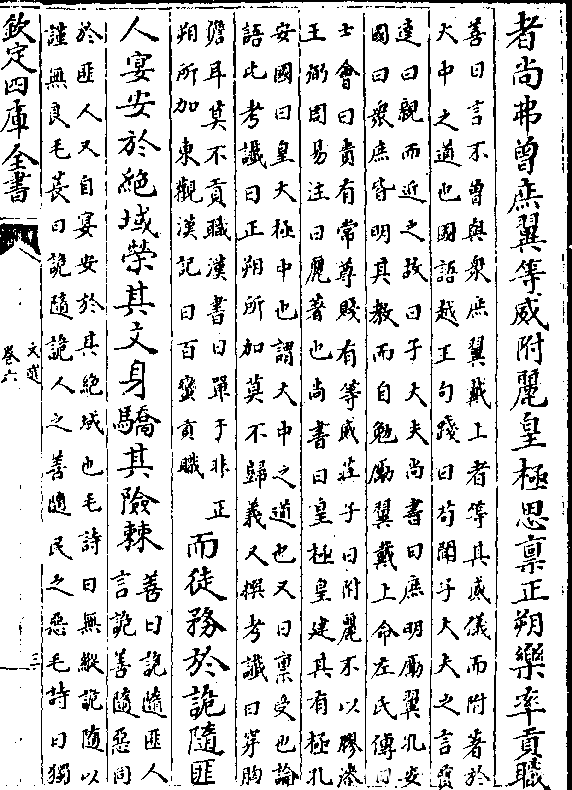 者尚弗曾庶翼等威附麗皇極思稟正朔樂率貢職
善曰言不曾與衆庶翼戴上者等其威儀而附著於
大中之道也國語越王句踐曰苟聞子大夫之言賈
逵曰親而近之故曰子大夫尚書曰庶明厲翼孔安
國曰衆庶皆明其教而自勉厲翼戴上命左氏傳曰
士會曰貴有常尊賤有等威莊子曰附麗不以膠漆
王弼周易注曰麗著也尚書曰皇極皇建其有極孔
安國曰皇大極中也謂大中之道也又曰稟受也論
語此考讖曰正朔所加莫不歸義又撰考讖曰穿胸
儋耳莫不貢職漢書曰單于非正
朔所加東觀漢記曰百蠻貢職
而徒務於詭隨匪
人宴安於絶域榮其文身驕其險棘
善曰詭隨匪人
言詭善隨惡同
於匪人又自宴安於其絶域也毛詩曰無縱詭隨以
謹無良毛萇曰詭隨詭人之善隨民之惡毛詩曰獨
欽定四庫全書
文選
卷六
三